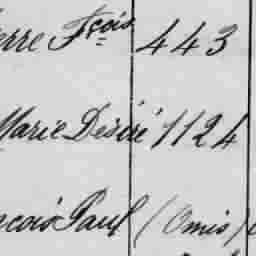 erre Fçois 443
Marie Désiré 1124
nçois Paul (Omis)